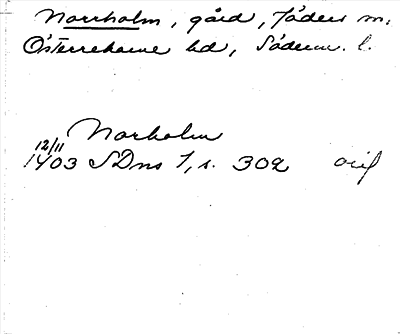 Norrholm, gård, Jäders sn,
Österrekarne hd, Söderm. l.
Norholm
12/11
1403 SDns 1, s. 302 orig